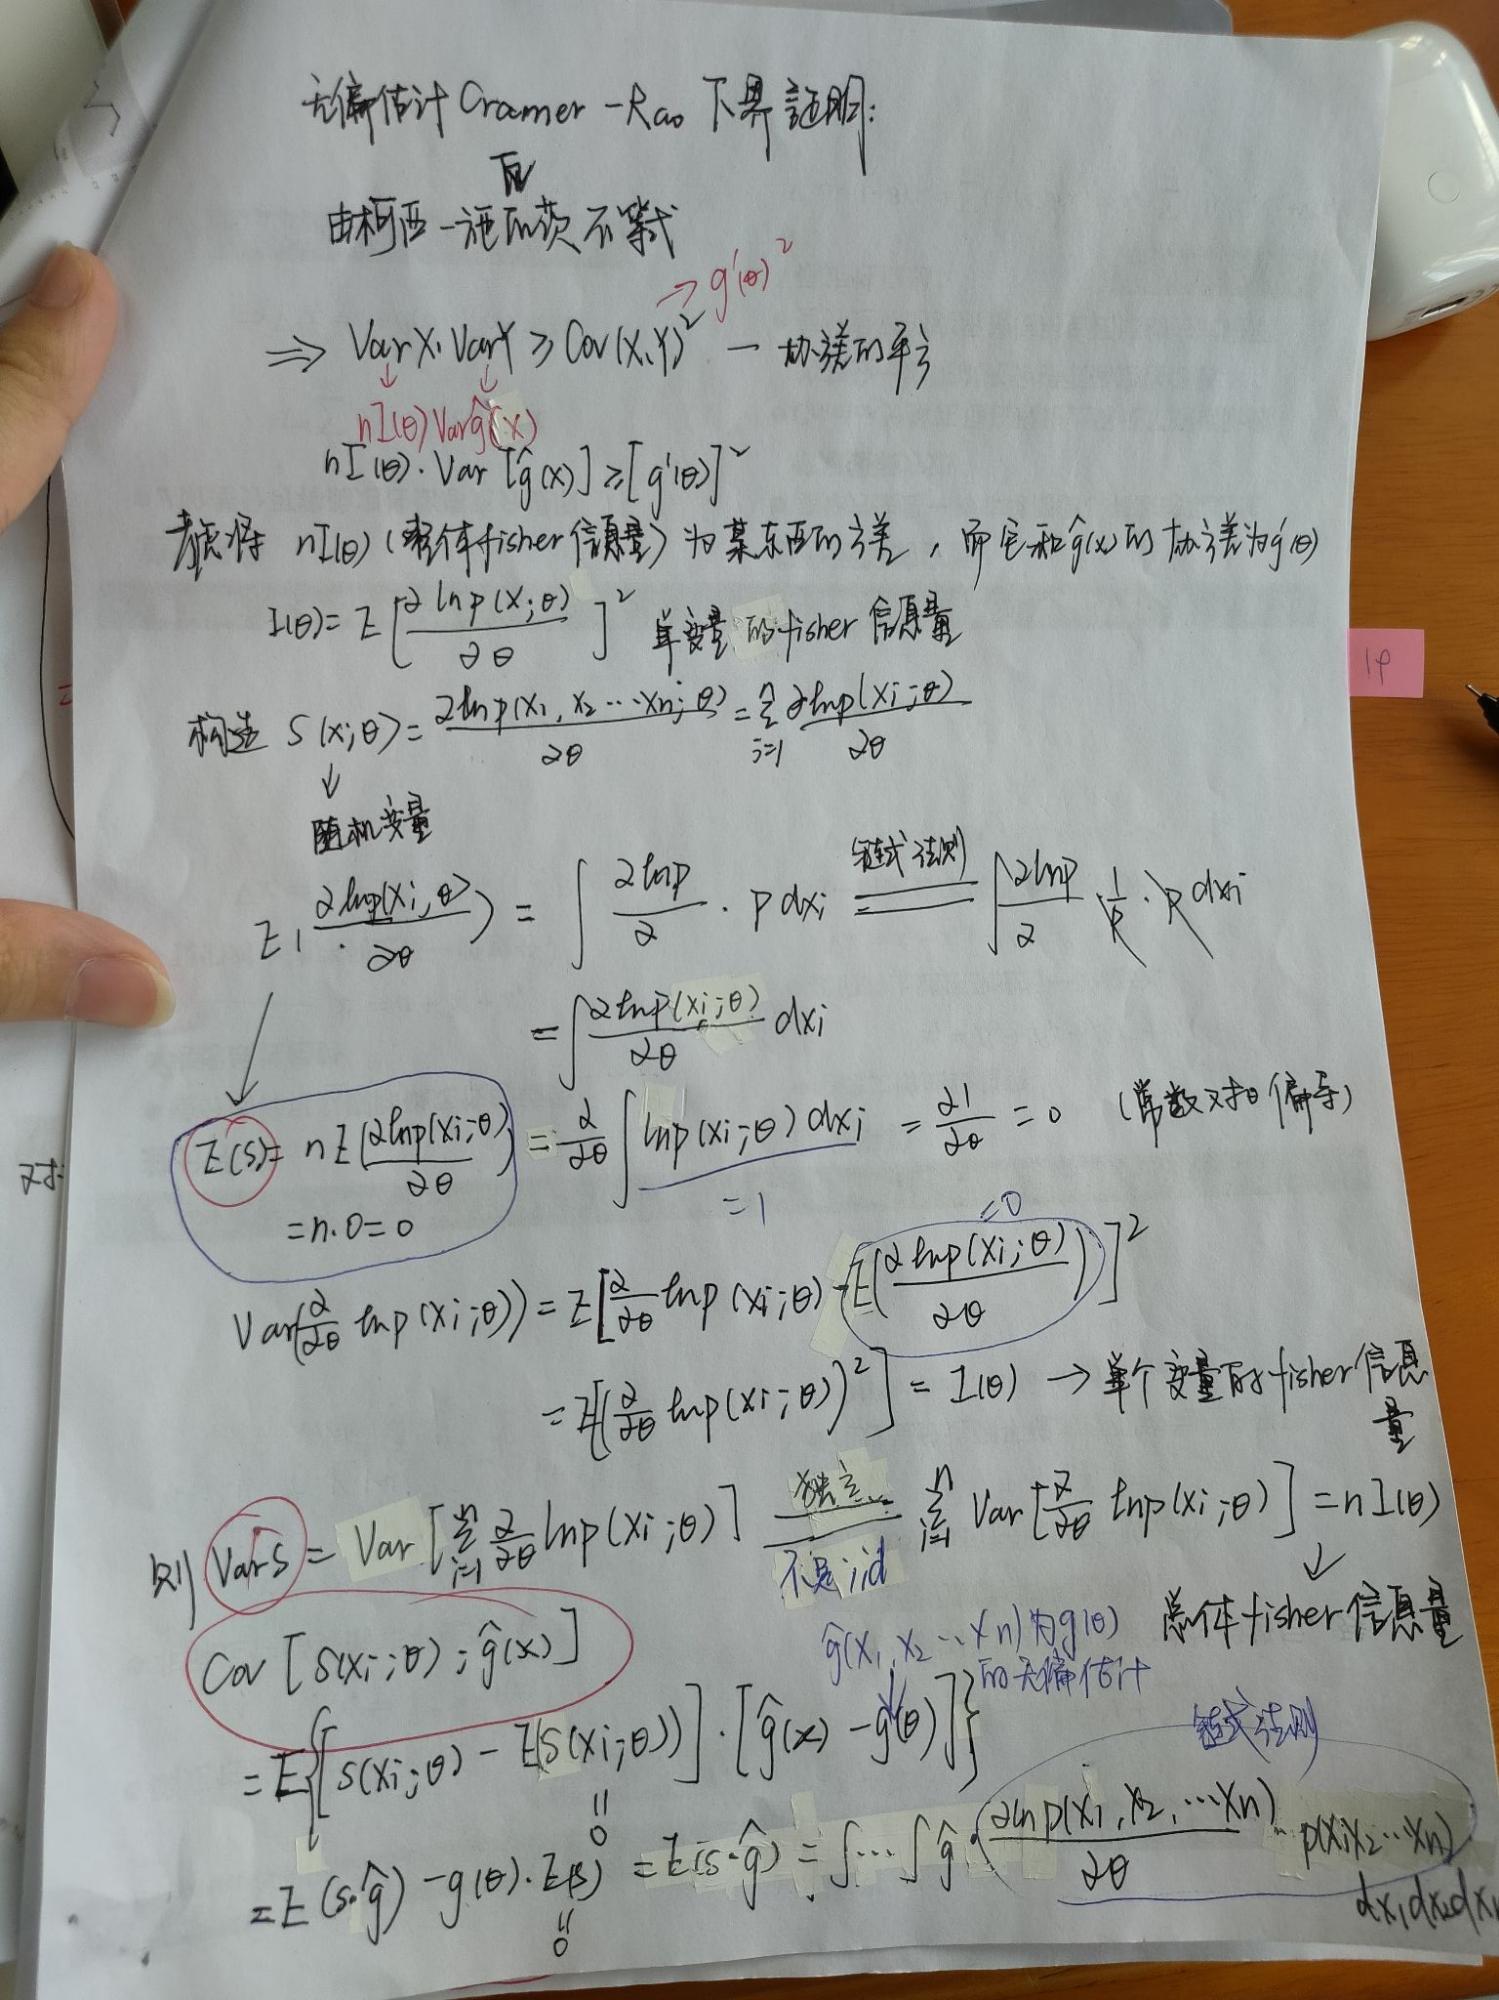 无偏估计 Cramer-Rao 下界 証明:
由柯西-施瓦茨不等式
瓦
⇒ VarX·VarY ≥ Cov(X,Y)² — 协方差的平方
→ g'(θ)²
↓ ↓
nI(θ) Varĝ(x)
nI(θ)·Var[ĝ(x)] ≥ [g'(θ)]²
nI(θ) (整体fisher信息量) 为某东西的方差,而它和ĝ(x)的协方差为g'(θ)
I(θ)= E[∂lnp(X;θ)/∂θ]² 单变量的fisher信息量
构造 S(x;θ)= ∂lnp(x₁,x₂…xn;θ)/∂θ = Σ(i=1,n) ∂lnp(xi;θ)/∂θ
↓
随机变量
E(∂lnp(xi,θ)/∂θ) = ∫ ∂lnp/∂ · p dxi =(链式法则)= ∫ ∂lnp/∂ · 1/p · p dxi
= ∫ ∂lnp(xi;θ)/∂θ dxi
E(S)= nE(∂lnp(xi;θ)/∂θ) = ∂/∂θ ∫ lnp(xi;θ)dxi = ∂1/∂θ = 0 (常数对θ偏导)
=n·0=0
=1
=0
Var(∂/∂θ lnp(xi;θ)) = E[∂/∂θ lnp(xi;θ) - E(∂lnp(xi;θ)/∂θ)]²
= E[(∂/∂θ lnp(xi;θ))²] = I(θ) → 单个变量的fisher信息量
则 VarS = Var[Σ(i=1,n) ∂/∂θ lnp(xi;θ)] =(独立)= Σ(i=1,n) Var[∂/∂θ lnp(xi;θ)] = nI(θ)
不是iid
↓
总体fisher信息量
Cov[S(xi;θ);ĝ(x)]
ĝ(x₁,x₂…xn)为g(θ)
的无偏估计
= E{[S(xi;θ) - E(S(xi;θ))]·[ĝ(x) - g(θ)]}
"
0
链式法则
= E(S·ĝ) - g(θ)·E(S) = E(S·ĝ) = ∫…∫ ĝ·∂lnp(x₁,x₂,…xn)/∂θ · p(x₁x₂…xn)
"
0
dx₁dx₂dx
14
对